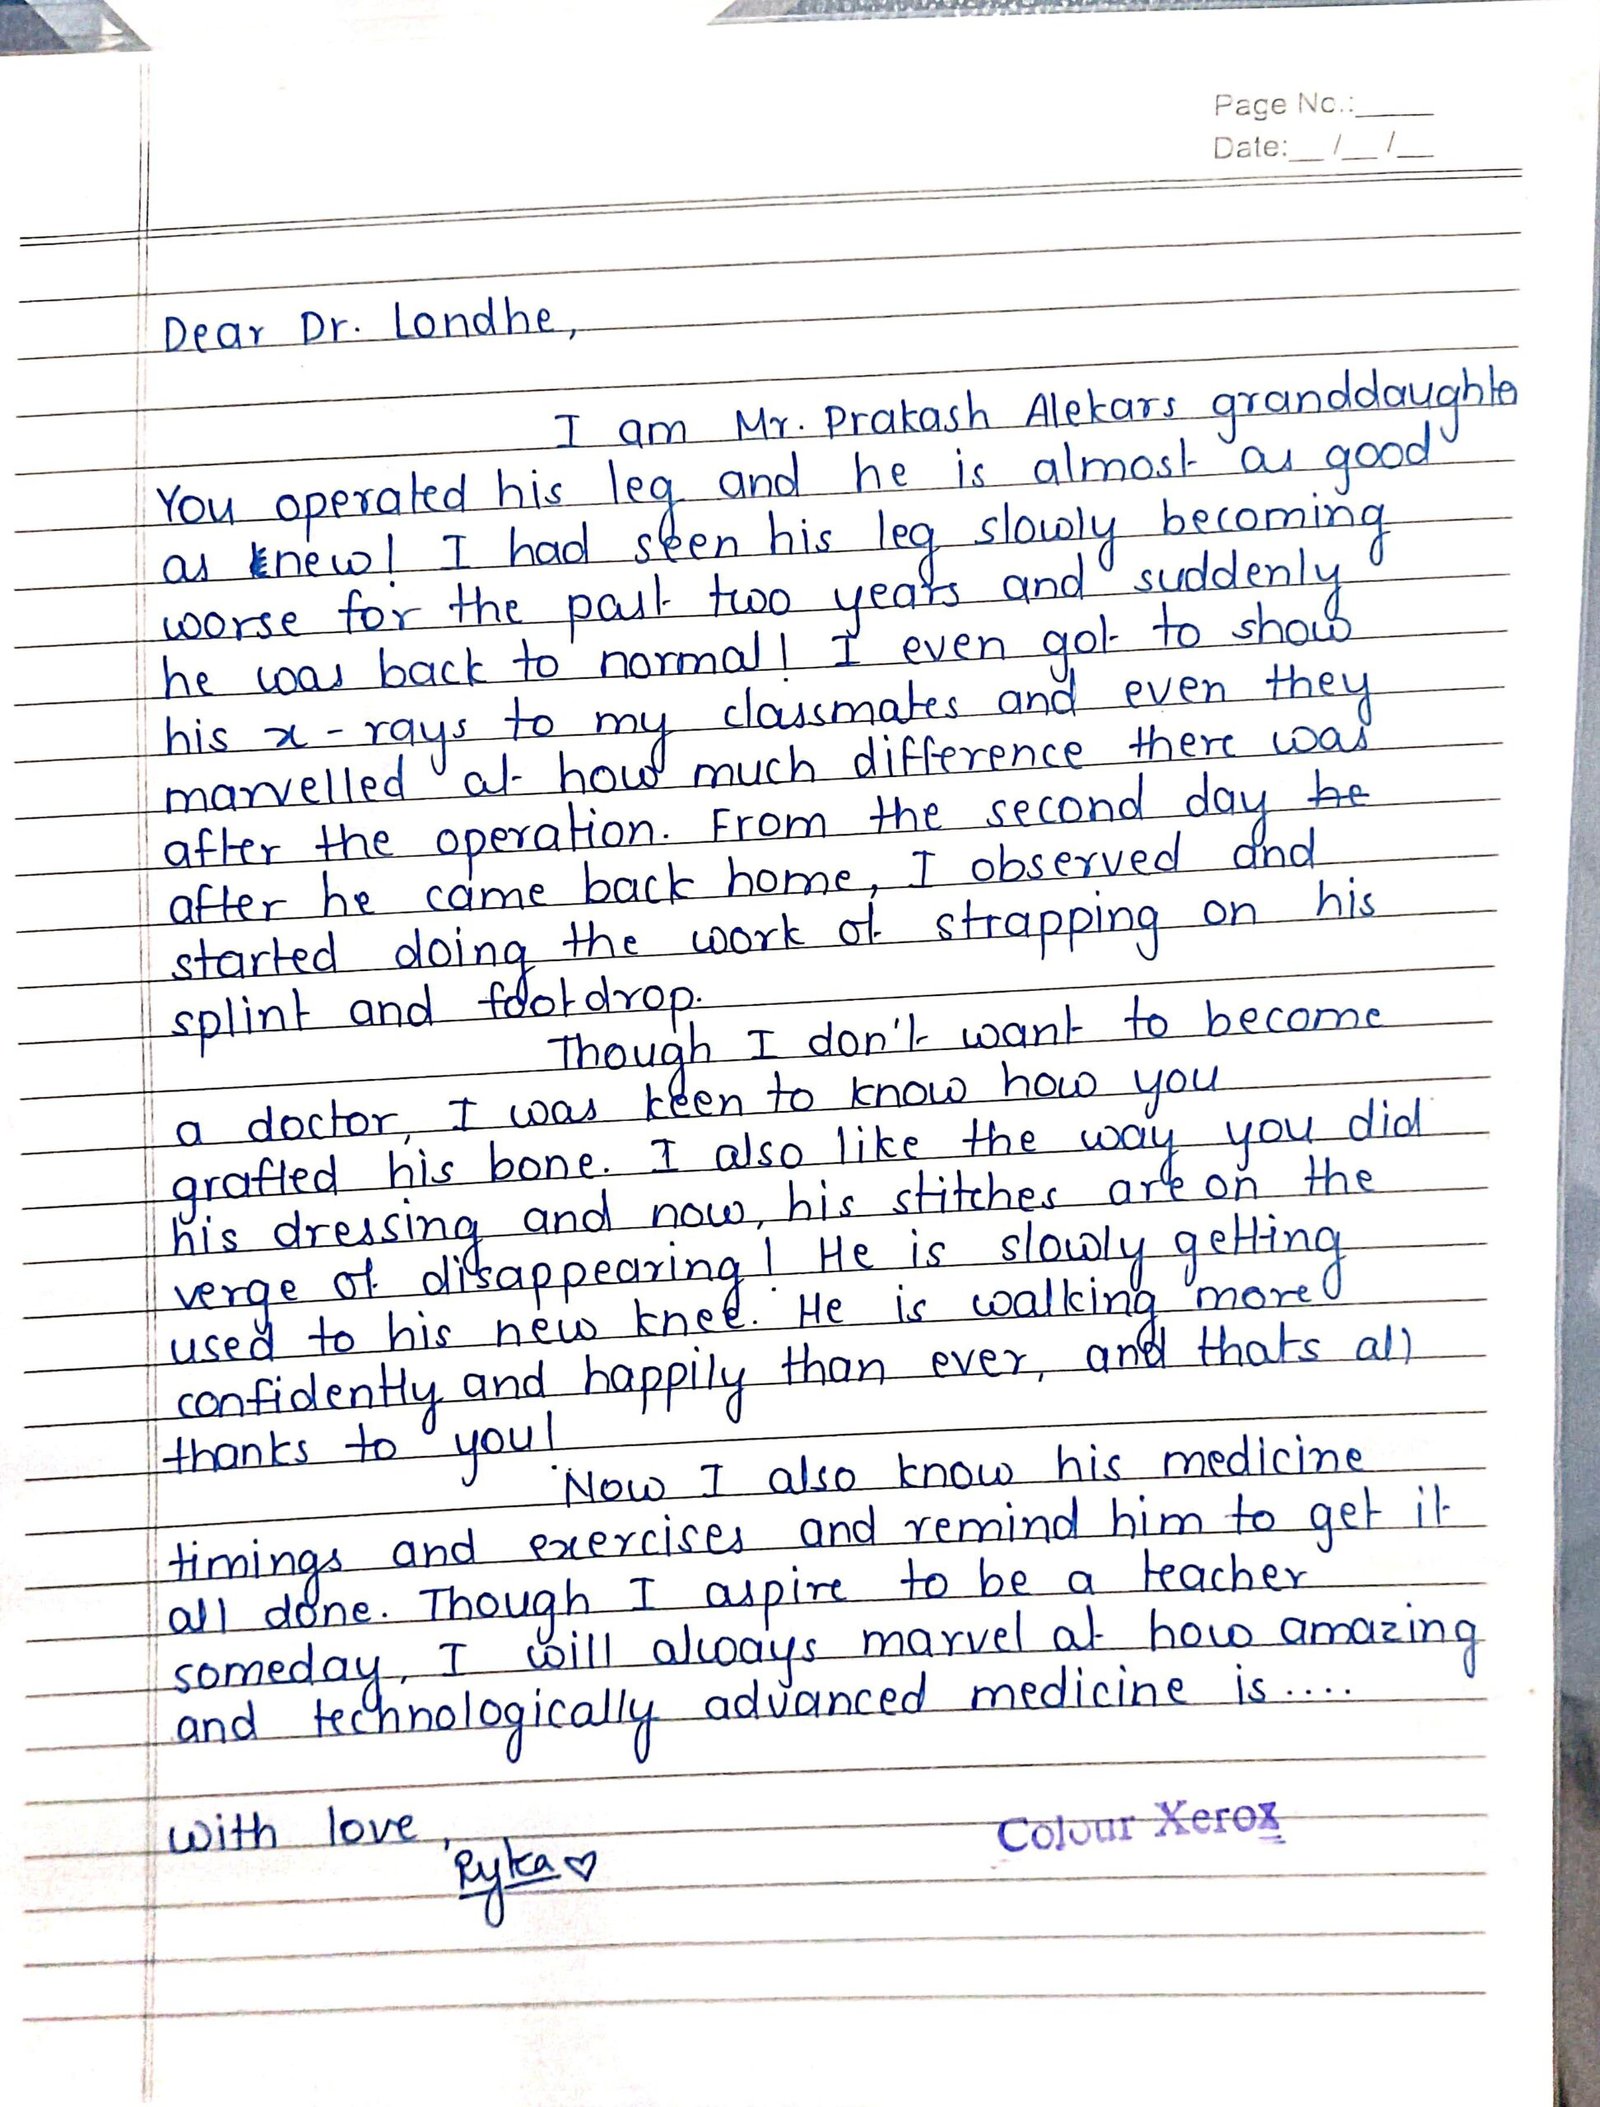 Page No.:____
Date:__/__/__
Dear Dr. Londhe,
I am Mr. Prakash Alekars granddaughter
You operated his leg and he is almost as good
as new! I had seen his leg slowly becoming
worse for the past two years and suddenly
he was back to normal! I even got to show
his x-rays to my classmates and even they
marvelled at how much difference there was
after the operation. From the second day he
after he came back home, I observed and
started doing the work of strapping on his
splint and footdrop.
Though I don't want to become
a doctor, I was keen to know how you
grafted his bone. I also like the way you did
his dressing and now, his stitches are on the
verge of disappearing! He is slowly getting
used to his new knee. He is walking more
confidently and happily than ever, and thats all
thanks to you!
Now I also know his medicine
timings and exercises and remind him to get it
all done. Though I aspire to be a teacher
someday, I will always marvel at how amazing
and technologically advanced medicine is....
With love,
Ryka ♡
Colour Xerox